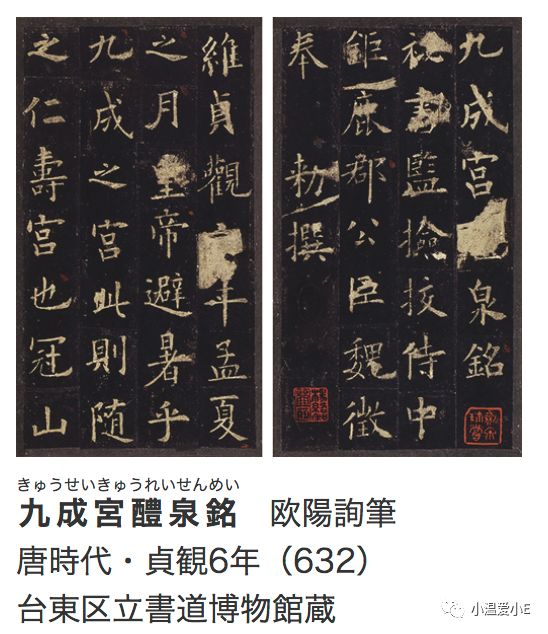 九成宮泉銘
祕書監撿挍侍中
鉅鹿郡公臣魏徵
奉 勅撰
維貞觀年孟夏
之月皇帝避暑乎
九成之宮此則隨
之仁壽宮也冠山
きゅうせいきゅうれいせんめい
九成宮醴泉銘 欧陽詢筆
唐時代・貞観6年（632）
台東区立書道博物館蔵
小温爱小E